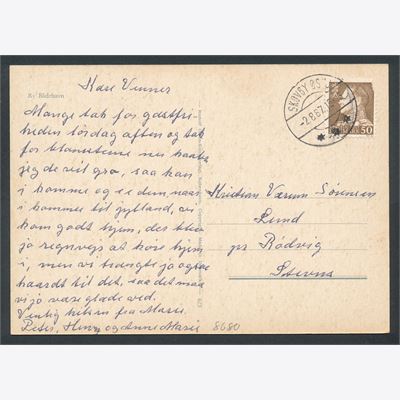 Ry Bådehavn
Kære Venner
Mange tak for gæstfri
heden lørdag aften og tak
for blomsterne nu haaber
jeg de vil gro, saa kan
i komme og se dem naar
i kommer til jylland, vi
kom godt hjem, des blev
jo regnvejs at køre hjem
i, men vi trængte jo ogsaa
haardt til det, saa det maa
vi jo være glade ved.
Venlig hilsen fra Marie
Peter, Henry og Anne Marie
SKOVBY
-2.8.67
50
Kristian Værum Sørensen
Lund
pr Rødvig
Stevns
8680